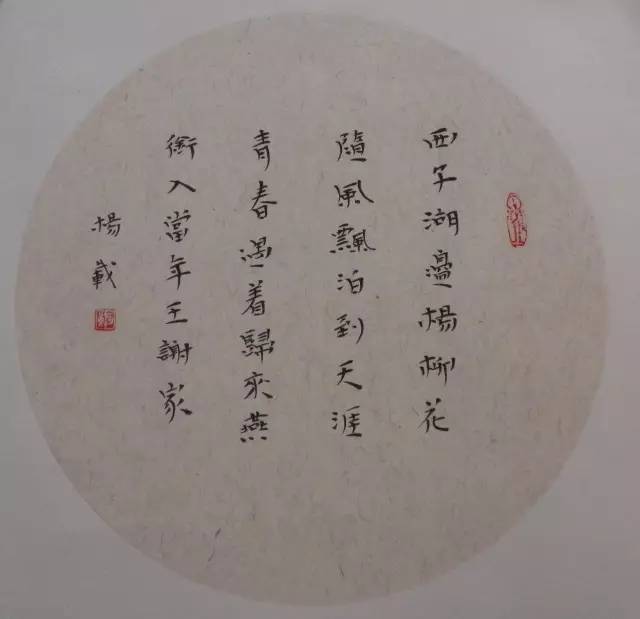 西子湖邊楊柳花
隨風飄泊到天涯
青春遇着歸來燕
銜入當年王謝家
楊載